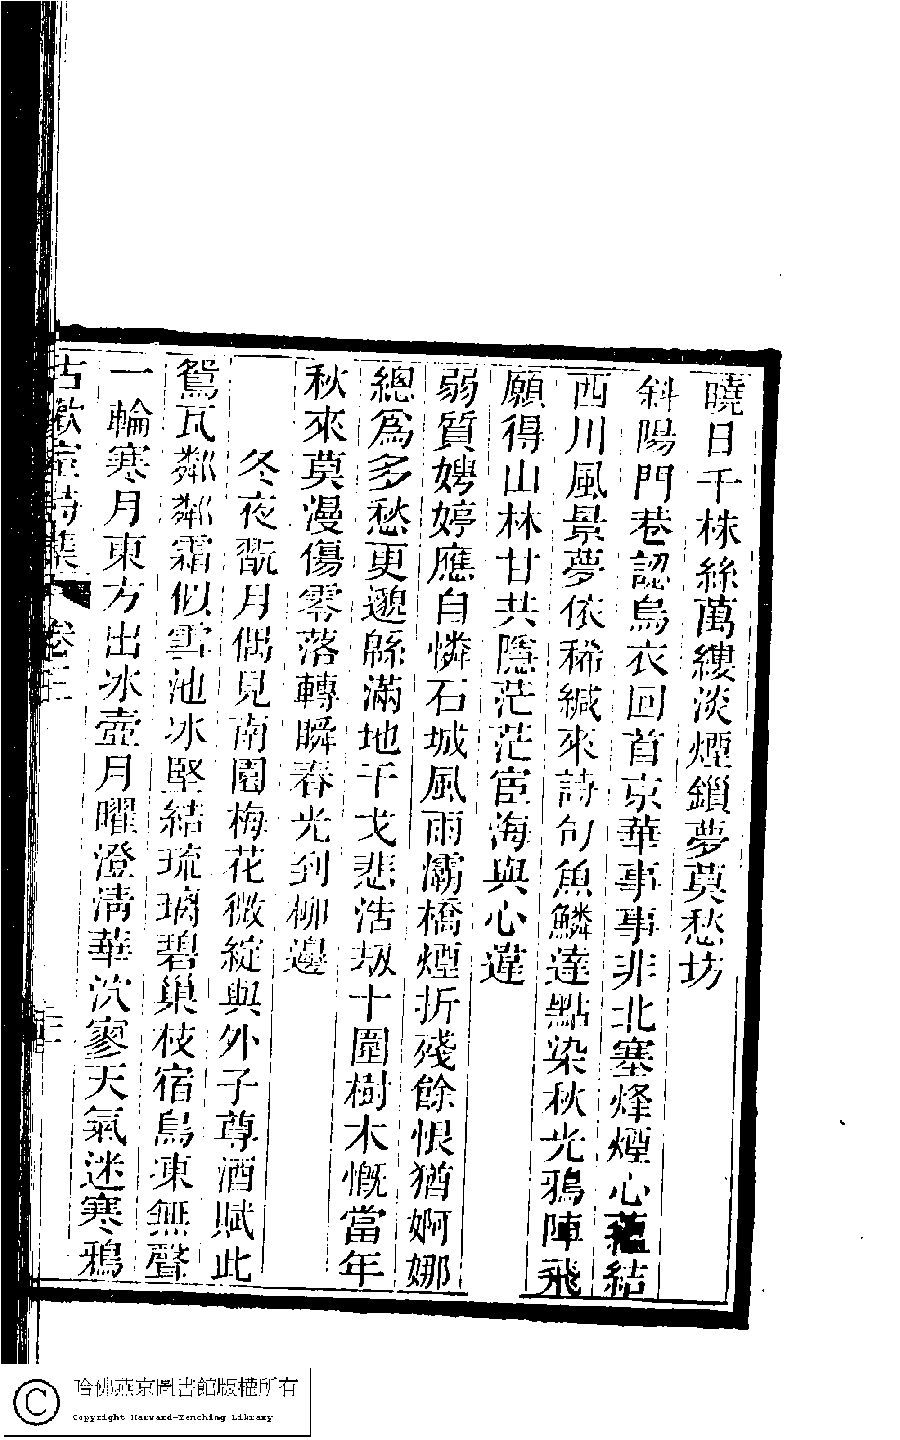 曉日千株絲萬縷淡煙鎖夢莫愁坊
斜陽門巷認烏衣回首京華事事非北塞烽煙心蘊結
西川風景夢依稀緘來詩句魚鱗達點染秋光鴉陣飛
願得山林甘共隱茫茫宦海與心違
弱質娉婷應自憐石城風雨灞橋煙折殘餘恨猶婀娜
總爲多愁更邈緜滿地干戈悲浩刼十圍樹木慨當年
秋來莫漫傷零落轉瞬春光到柳邊
冬夜翫月偶見南園梅花微綻與外子尊酒賦此
鴛瓦粼粼霜似雪池冰堅結琉璃碧巢枝宿鳥凍無聲
一輪寒月東方出冰壺月曜澄清華泬寥天氣迷寒鴉
古歡室詩集 卷三 三
哈佛燕京圖書館版權所有
Copyright Harvard-Yenching Library